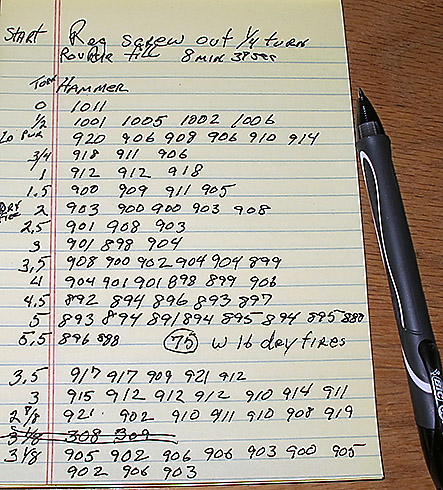 START Reg screw out 1/4 turn
fill 8 min 38 sec
Turn HAMMER
0 1011
1/2 1001 1005 1002 1006
Lo Pwr 920 906 908 906 910 914
3/4 918 911 906
1 912 912 918
1.5 900 909 911 905
2 903 900 900 903 908
2.5 901 908 903
3 901 898 904
3.5 908 900 902 904 904 899
4 904 901 901 898 899 906
4.5 892 894 896 893 897
5 893 894 891 894 895 894 895 880
5.5 896 898
75 w 16 dry fires
3.5 917 917 909 921 912
3 915 912 912 912 910 914 911
2 7/8 921 902 910 911 910 908 919
3 1/8 308 309
3 1/8 905 902 906 906 903 900 905
902 906 903